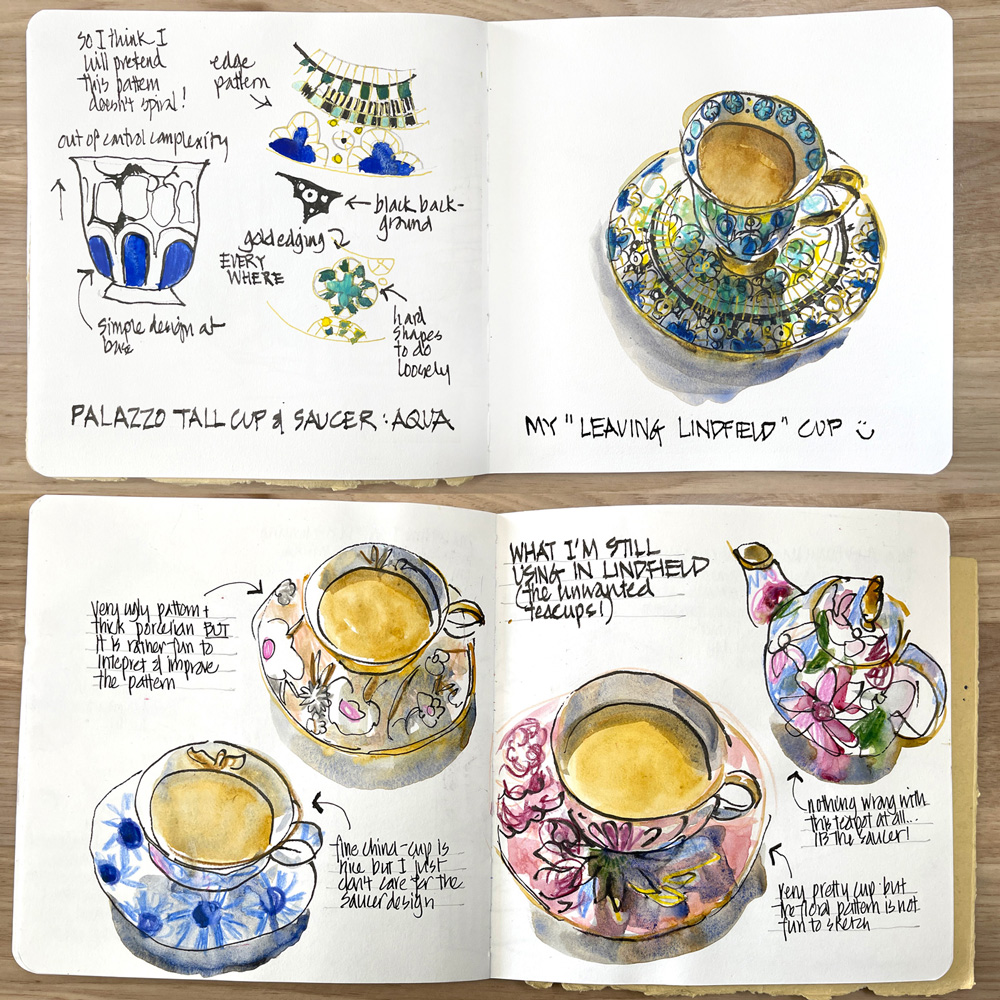 So I think I
will pretend
this pattern
doesn't spiral!
edge
pattern
out of control complexity
black back-
ground
gold edging
EVERY
WHERE
simple design at
base
hard
shapes
to do
loosely
PALAZZO TALL CUP & SAUCER : AQUA
MY "LEAVING LINDFIELD" CUP
very ugly pattern +
thick porcelian BUT
it is rather fun to
intepret & improve
the pattern
fine china - cup is
nice but I just
don't care for the
saucer design
WHAT I'M STILL
USING IN LINDFIELD
(the unwanted
teacups!)
nothing wrong with
this teapot at all...
it's the saucer!
very pretty cup but
the floral pattern is not
fun to sketch